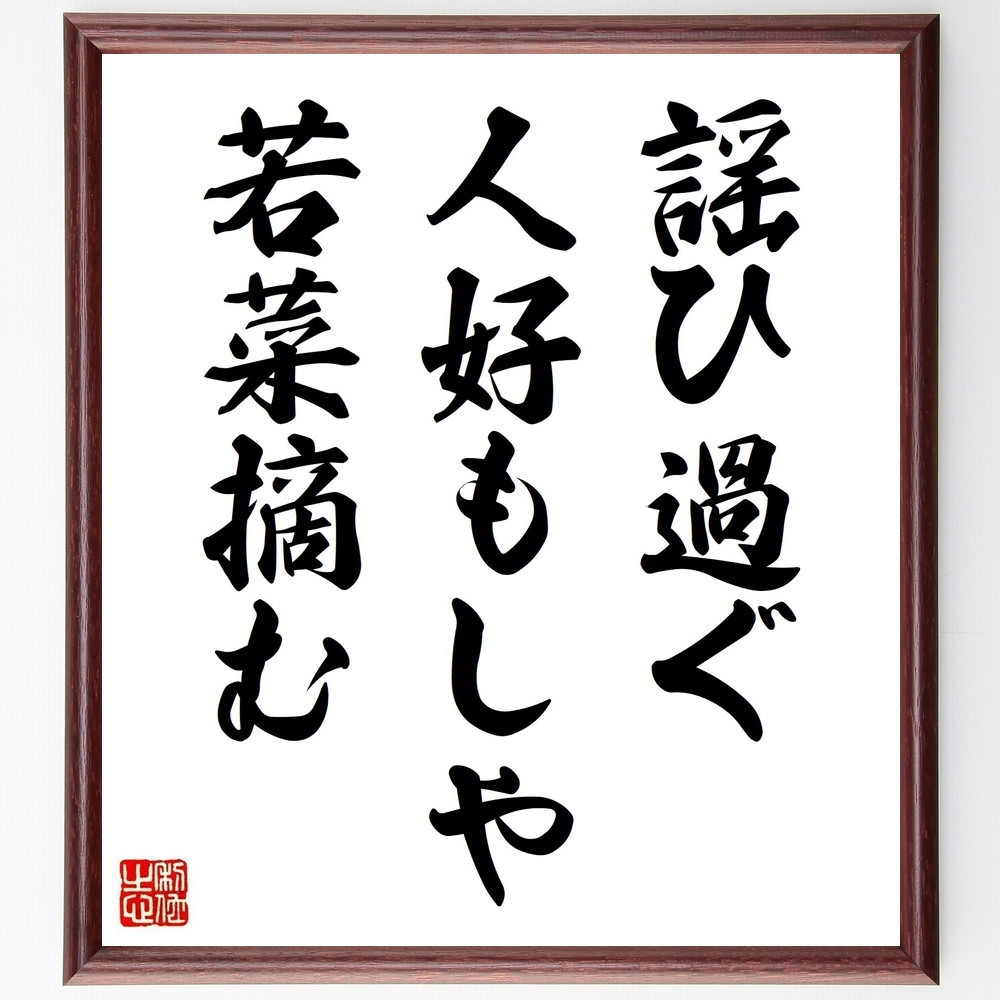 謡ひ過ぐ
人好もしや
若菜摘む